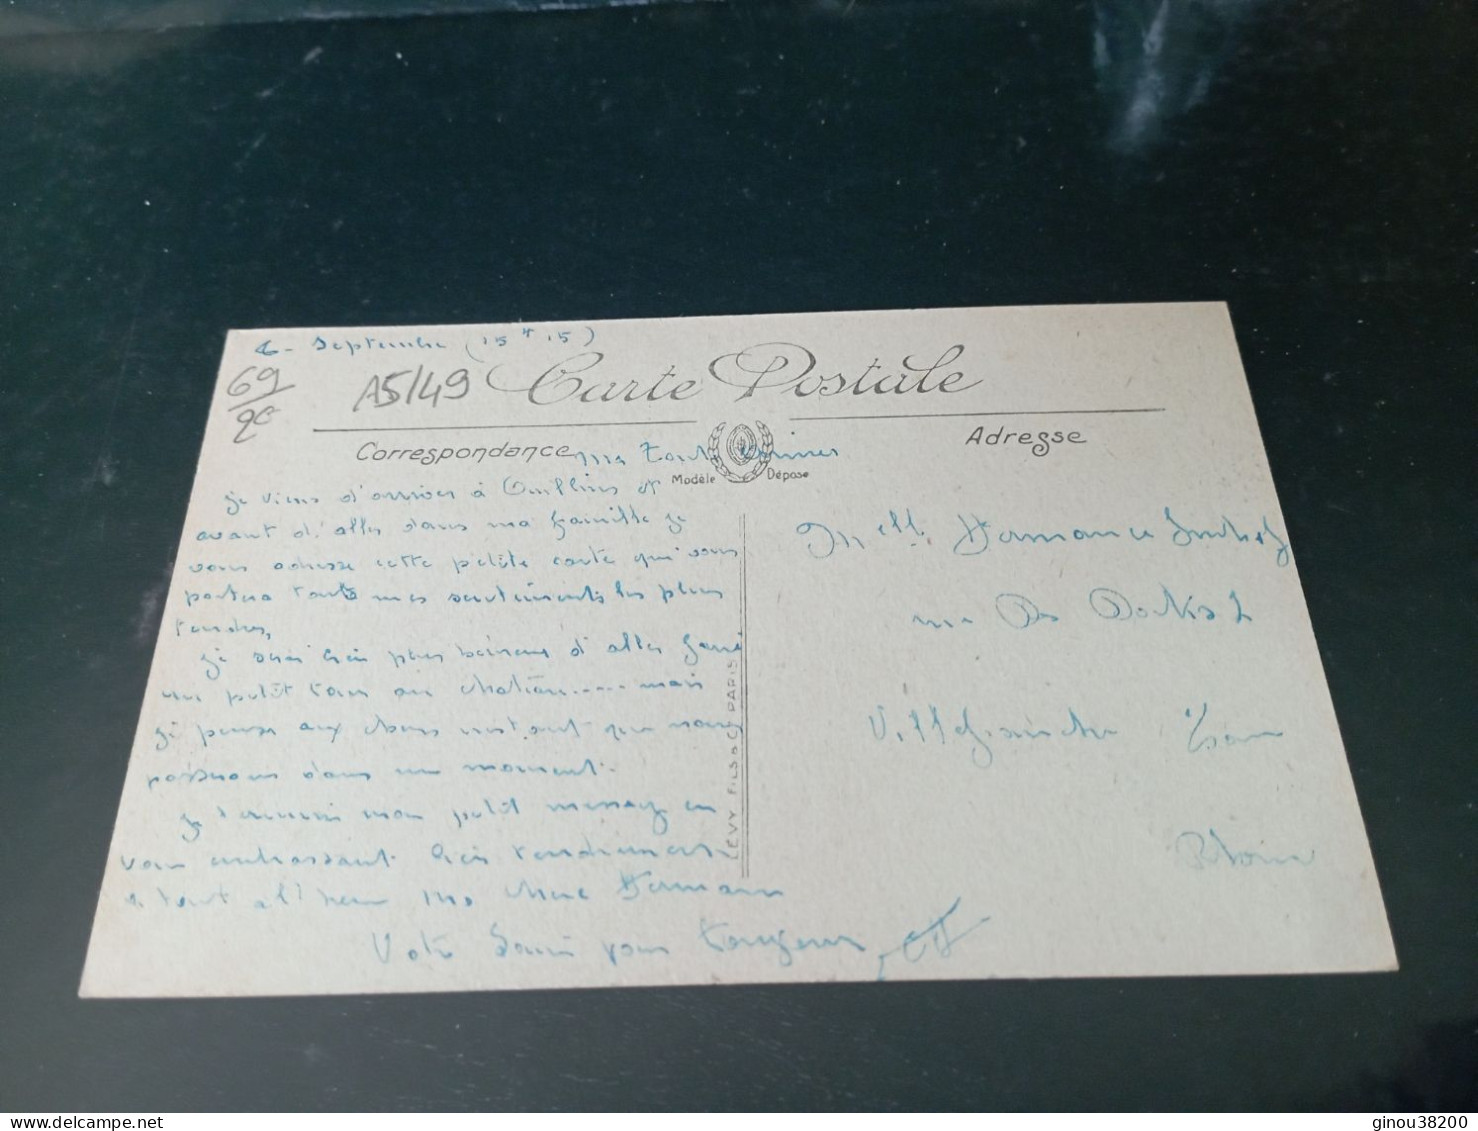 Septembre (15 H 15)
69
2€
A5/49
Carte Postale
Correspondance
Adresse
Modèle Déposé
ma
je viens d'arriver à Oullins et
avant d'aller dans ma famille je
vous adresse cette petite carte qui vous
portera toutes mes sentiments les plus
tendres,
je serai bien plus heureux d'aller faire
un petit tour au château..... mais
je pense aux chers instants que nous
passerons dans un moment.
je termine mon petit message en
vous embrassant bien tendrement
à tout à l'heure ma chère Germaine
Votre pour toujours
Melle Germaine
rue
Villefranche
Rhône
LEVY FILS & Cie PARIS
ginou38200